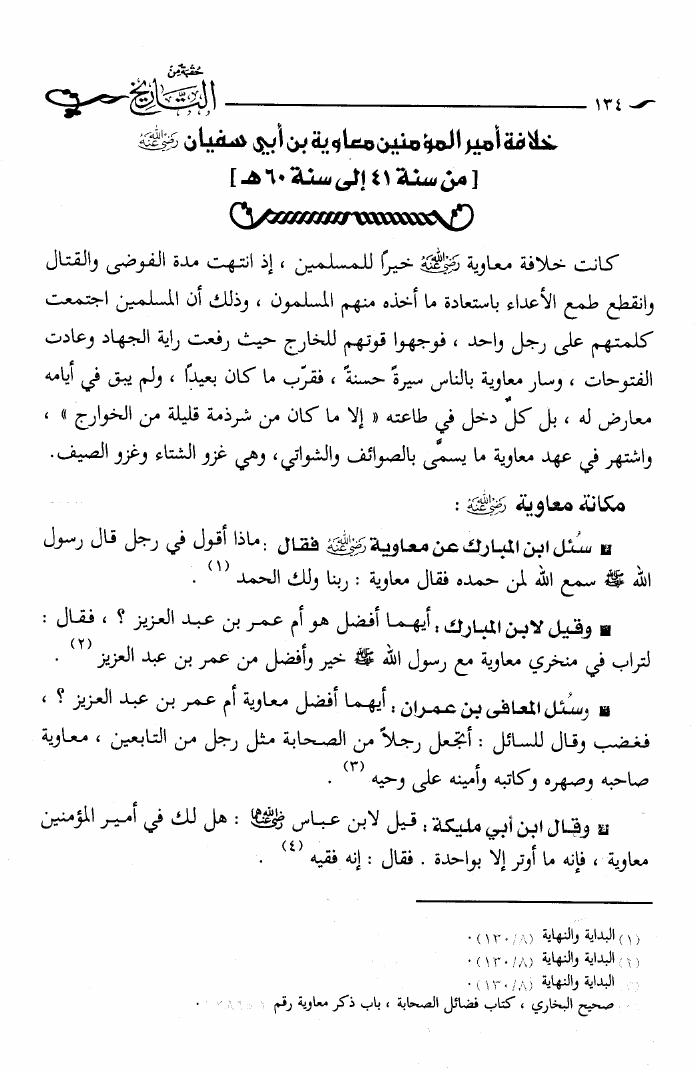 ١٣٤
حقبة من
التاريخ
خلافة أمير المؤمنين معاوية بن أبي سفيان رضي الله عنه
[ من سنة ٤١ إلى سنة ٦٠ هـ ]
كانت خلافة معاوية رضي الله عنه خيراً للمسلمين ، إذ انتهت مدة الفوضى والقتال
وانقطع طمع الأعداء باستعادة ما أخذه منهم المسلمون ، وذلك أن المسلمين اجتمعت
كلمتهم على رجل واحد ، فوجهوا قوتهم للخارج حيث رفعت راية الجهاد وعادت
الفتوحات ، وسار معاوية بالناس سيرةً حسنةً ، فقرّب ما كان بعيداً ، ولم يبق في أيامه
معارض له ، بل كلٌ دخل في طاعته « إلا ما كان من شرذمة قليلة من الخوارج » ،
واشتهر في عهد معاوية ما يسمّى بالصوائف والشواتي، وهي غزو الشتاء وغزو الصيف.
مكانة معاوية رضي الله عنه :
سُئل ابن المبارك عن معاوية رضي الله عنه فقال :ماذا أقول في رجل قال رسول
الله ﷺ سمع الله لمن حمده فقال معاوية : ربنا ولك الحمد (١) .
وقيل لابن المبارك : أيهما أفضل هو أم عمر بن عبد العزيز ؟ ، فقال :
لتراب في منخري معاوية مع رسول الله ﷺ خير وأفضل من عمر بن عبد العزيز (٢) .
وسُئل المعافى بن عمران : أيهما أفضل معاوية أم عمر بن عبد العزيز ؟ ،
فغضب وقال للسائل : أتجعل رجلاً من الصحابة مثل رجل من التابعين ، معاوية
صاحبه وصهره وكاتبه وأمينه على وحيه (٣) .
وقال ابن أبي مليكة : قيل لابن عباس رضي الله عنهما : هل لك في أمير المؤمنين
معاوية ، فإنه ما أوتر إلا بواحدة . فقال : إنه فقيه (٤) .
(١) البداية والنهاية (٨/ ١٣٠) .
(٢) البداية والنهاية (٨/ ١٣٠) .
البداية والنهاية (٨/ ١٣٠) .
صحيح البخاري ، كتاب فضائل الصحابة ، باب ذكر معاوية رقم